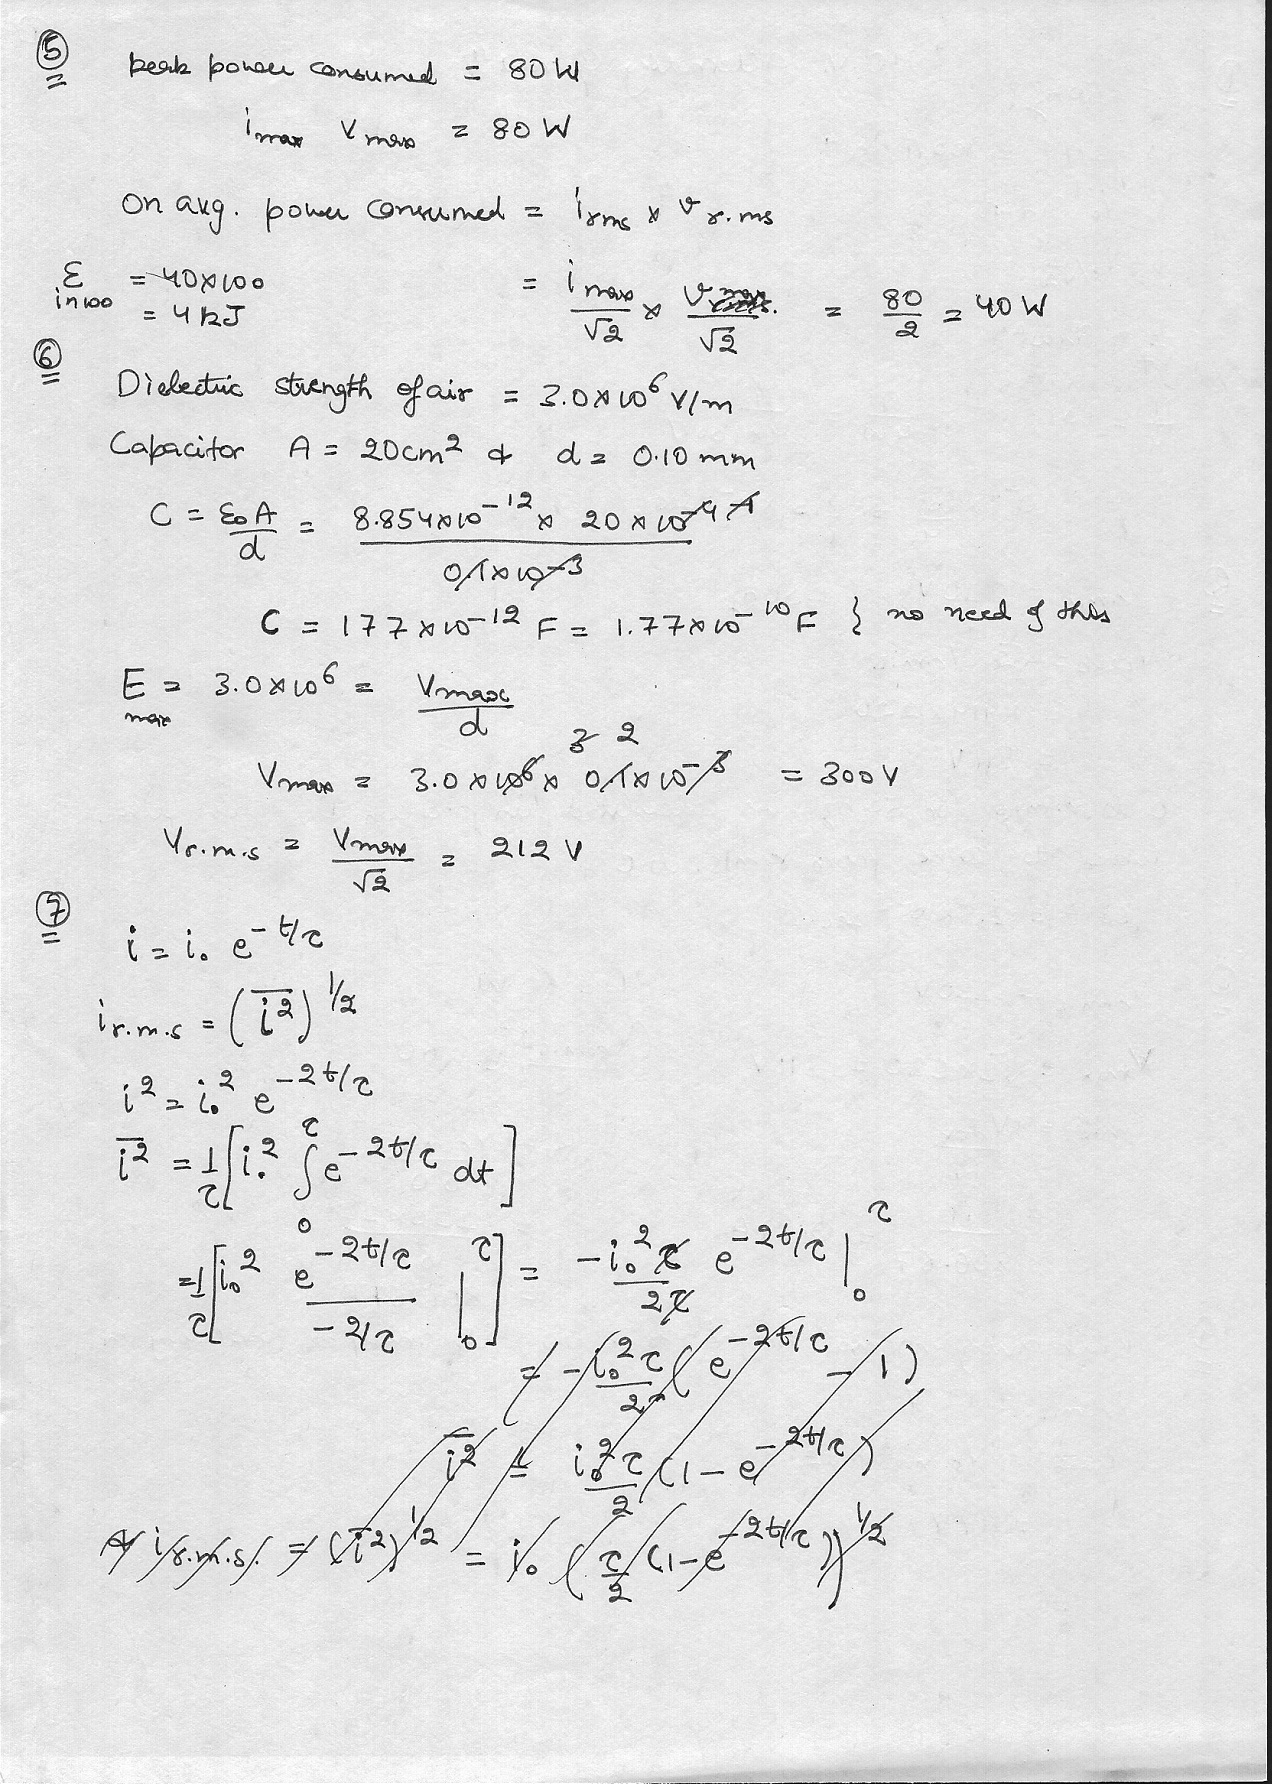 5
peak power consumed = 80 W
i max V max = 80 W
On avg. power consumed = i rms × v r.ms
ε in 100 = 40×100 = i max/√2 × v max/√2 = 80/2 = 40 W
= 4 kJ
6
Dielectric strength of air = 3.0×10^6 V/m
Capacitor A = 20cm² & d = 0.10 mm
C = ε₀A/d = 8.854×10^-12 × 20×10^-4 / 0.1×10^-3
C = 177×10^-12 F = 1.77×10^-10 F } no need of this
E max = 3.0×10^6 = Vmax/d
Vmax = 3.0×10^6 × 0.1×10^-3 = 300V
3 2
Vr.m.s = Vmax/√2 = 212 V
7
i = i₀ e^-t/τ
i r.m.s = (i̅²)^1/2
i² = i₀² e^-2t/τ
i̅² = 1/τ [i₀² ∫₀^τ e^-2t/τ dt]
= 1/τ [i₀² e^-2t/τ / -2/τ |₀^τ] = -i₀²τ/2τ e^-2t/τ |₀^τ
= -i₀²τ/2 (e^-2t/τ - 1)
i̅² = i₀²τ/2 (1 - e^-2t/τ)
i r.m.s. = (i̅²)^1/2 = i₀ (τ/2 (1-e^-2t/τ))^1/2